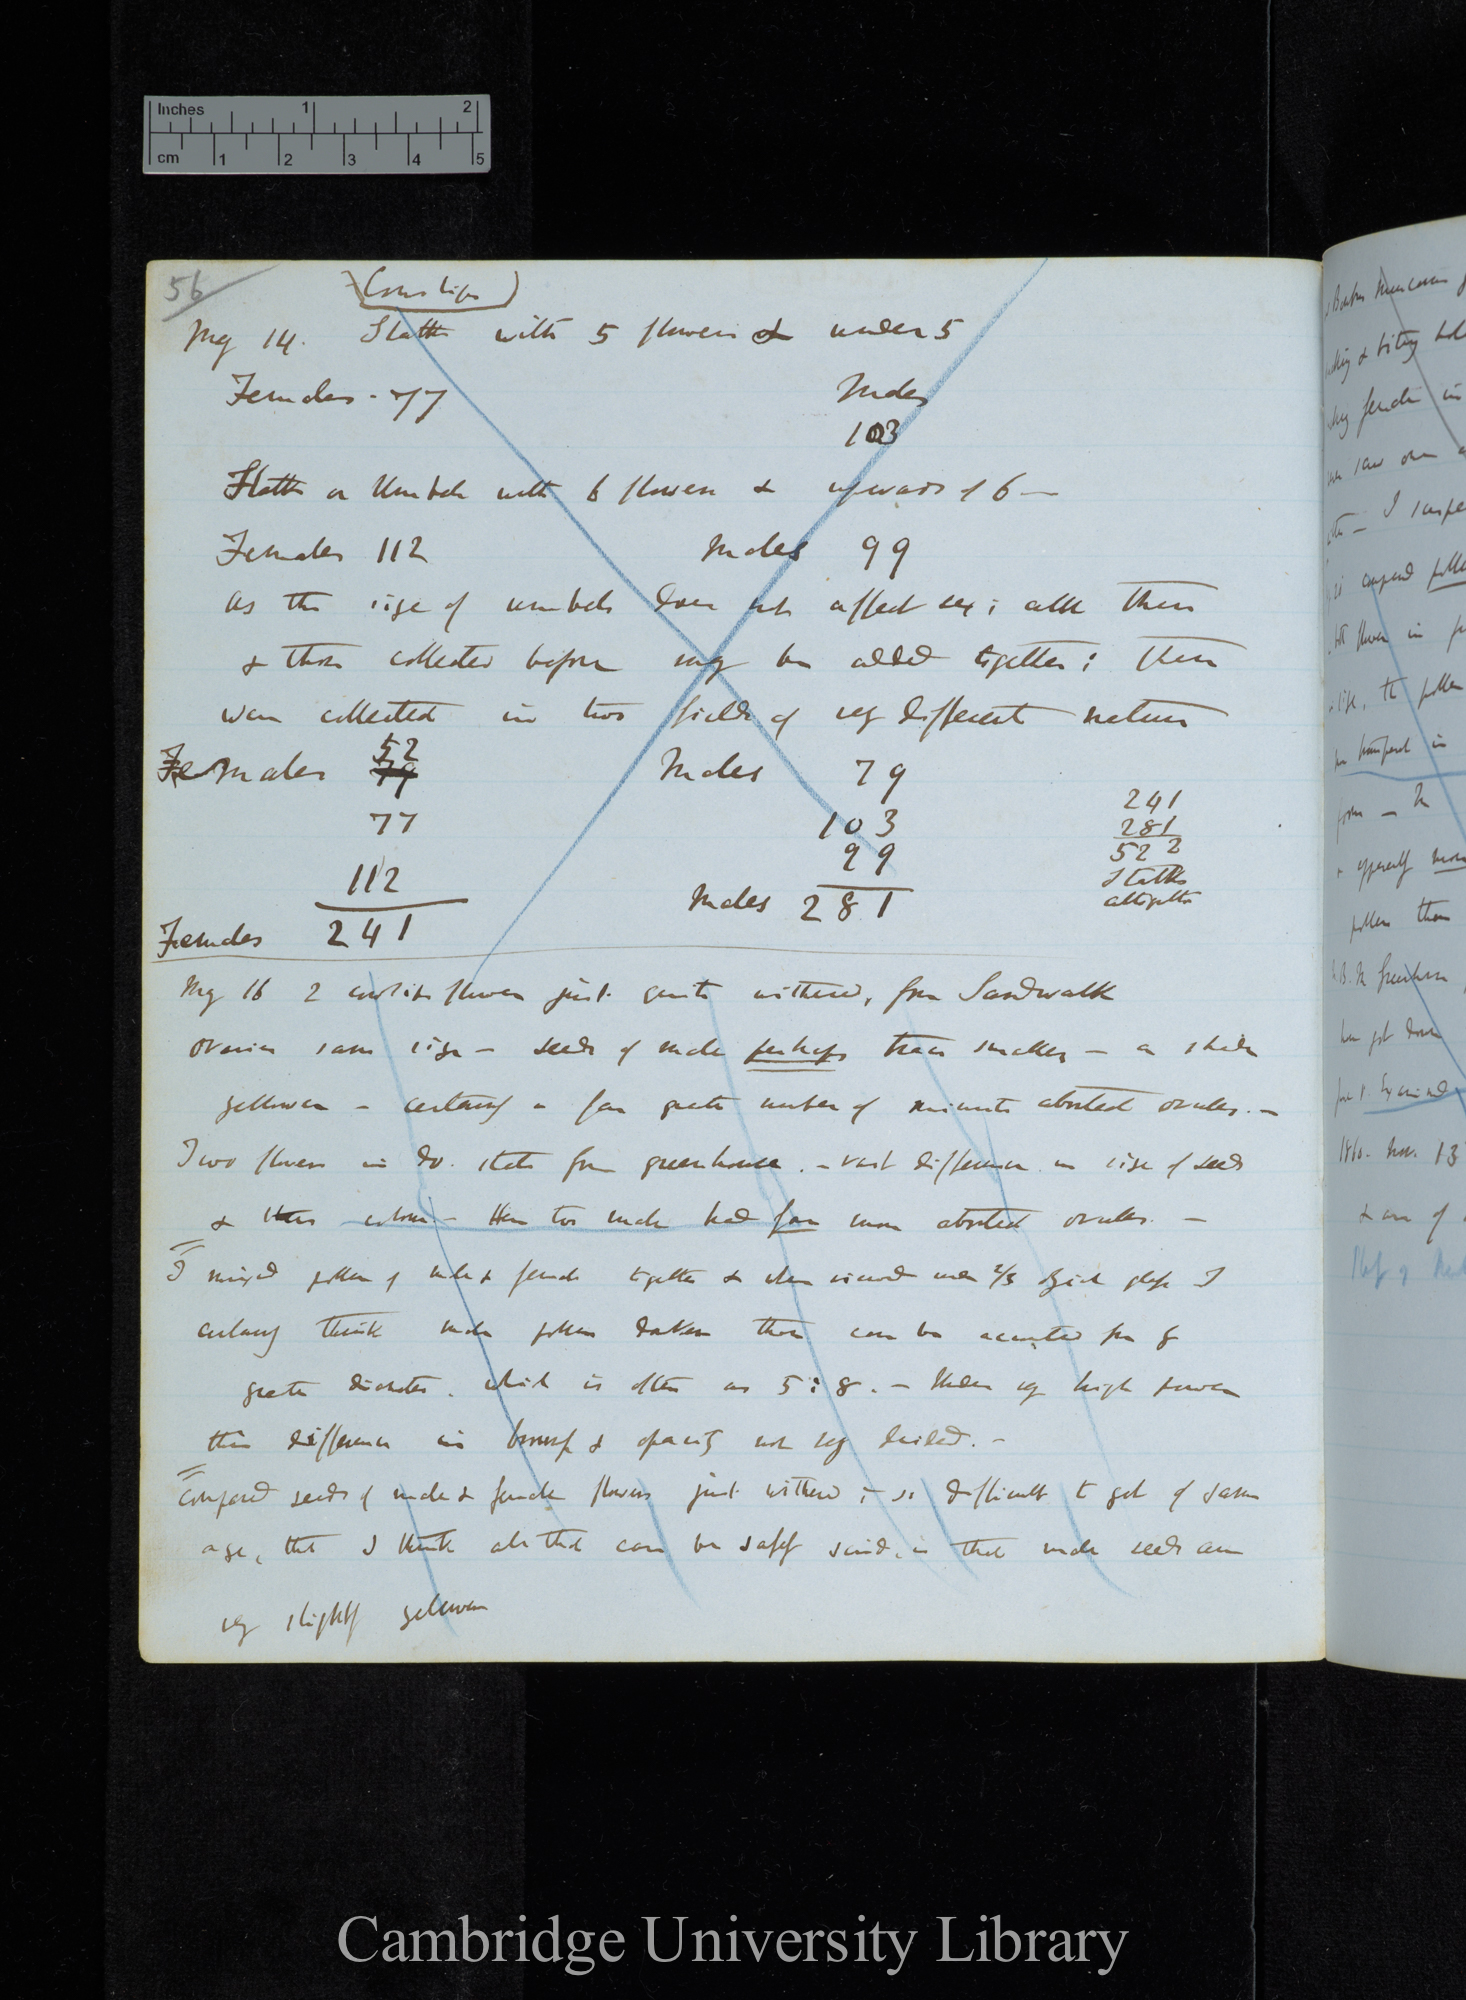 Inches 1 2
cm 1 2 3 4 5
56
(Cowslips)
May 14. Stalks with 5 flowers & under 5
Females. 77 Males
103
Stalks or Umbels with 6 flowers & upwards of 6 —
Females 112 Males 99
As the size of umbels does not affect sex; all these
& those collected before may be added together: these
were collected in two fields of very different nature
Females 52 Males 79
79
77 103
112 99
Females 241 Males 281
241
281
522
Stalks
altogether
May 16 2 cowslip flowers just quite withered, from Sandwalk
ovaries same size — seeds of male perhaps trace smaller — a shade
yellower — certainly a far greater number of minute aborted ovules. —
Two flowers in do. state from greenhouse. — vast difference in size of seeds
& colour — Here too male had far more aborted ovules. —
I mixed pollen of male & female together & when viewed under 2/3 object glass I
certainly think male pollen darker than can be accounted for by
greater diameter. which is often as 5:8. — Under very high power
this difference in & opacity not very decided. —
Compared seeds of male & female flowers just withered; so difficult to get of same
age, that I think all that can be safely said, is that male seeds are
very slightly yellower
I suspe
compared polle
flower in
the pollen
transferred in
form — In
& apparently more
pollen than
N.B. In Greenhouse
Examined
1860. Nov. 13
Cambridge University Library